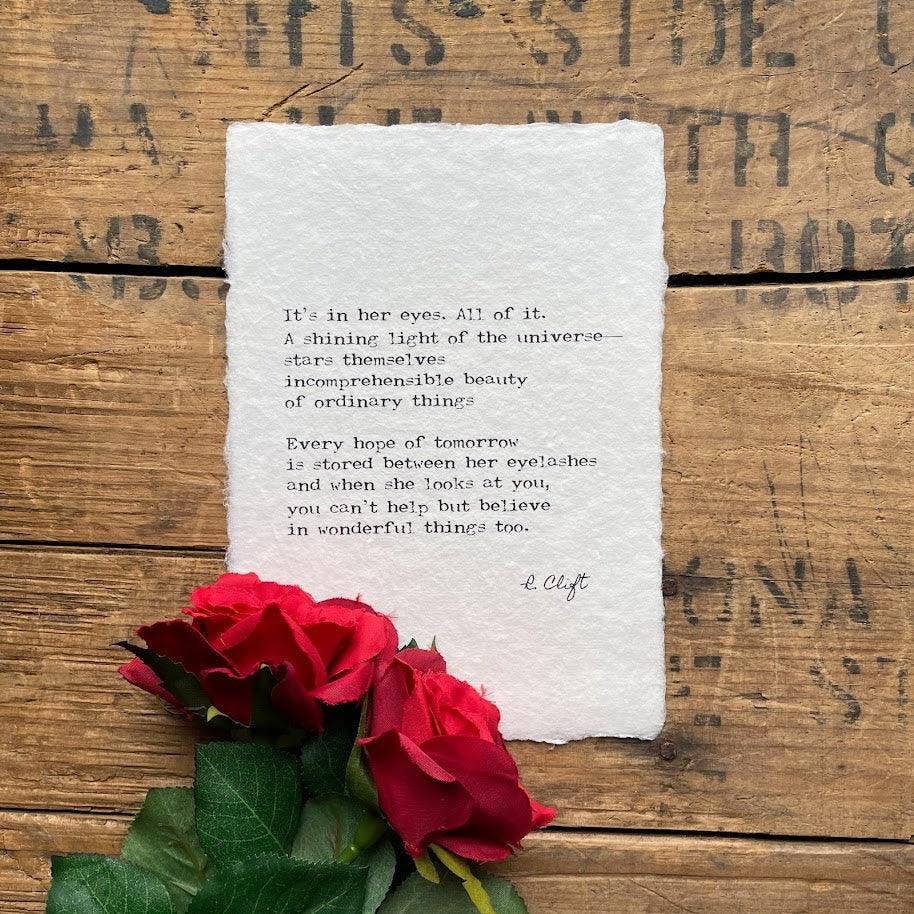 IT'S SIDE
WITH
B.
1307
It's in her eyes. All of it.
A shining light of the universe—
stars themselves
incomprehensible beauty
of ordinary things
Every hope of tomorrow
is stored between her eyelashes
and when she looks at you,
you can't help but believe
in wonderful things too.
R. Clift